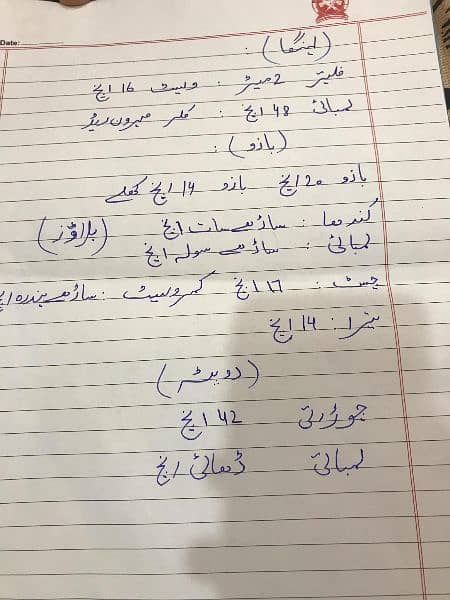 Date:
(لہنگا) :
فلیئر 2 میٹر : ویسٹ 16 انچ
لمبائی 48 انچ : کلر میرون ریڈ
(بازو) :
بازو 20 انچ بازو 14 انچ کھلے
کندھا : ساڑھے سات انچ (بلاؤز)
لمبائی : ساڑھے سولہ انچ
چسٹ : 17 انچ کمر ویسٹ : ساڑھے پندرہ انچ
14 انچ
(دوپٹہ)
چوڑائی 42 انچ
لمبائی ڈھائی انچ